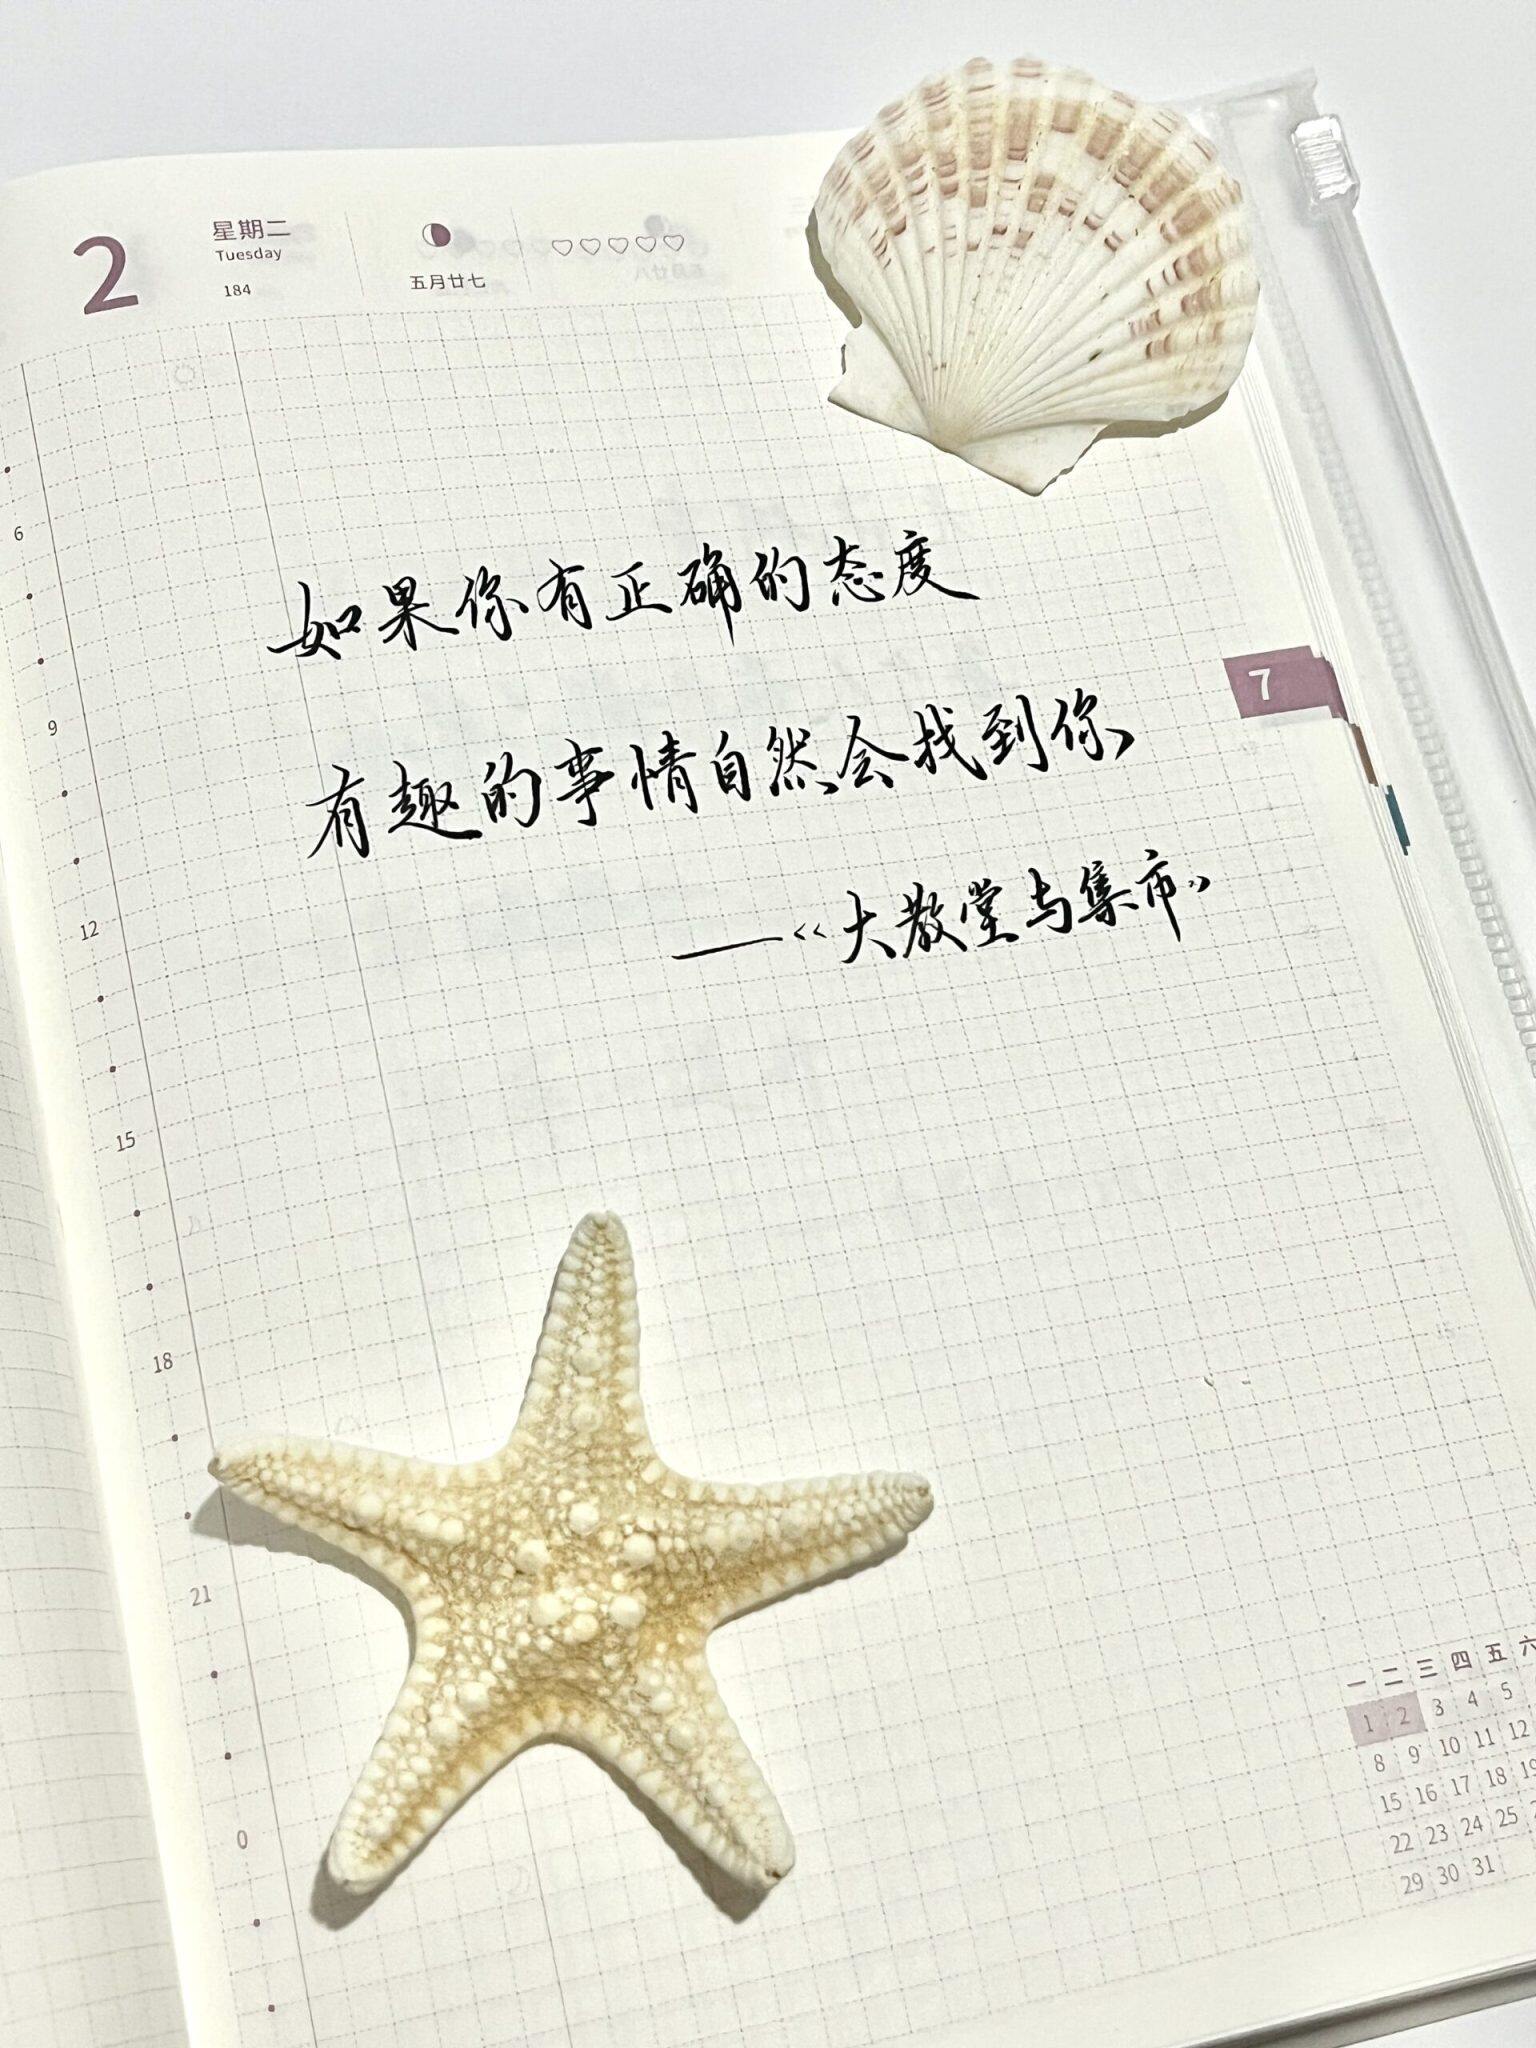 2
星期二
Tuesday
184
五月廿七
6
9
12
15
18
21
0
如果你有正确的态度
有趣的事情自然会找到你
——《大教堂与集市》
7
一 二 三 四 五 六
1 2 3 4 5
8 9 10 11 12
15 16 17 18 19
22 23 24 25
29 30 31